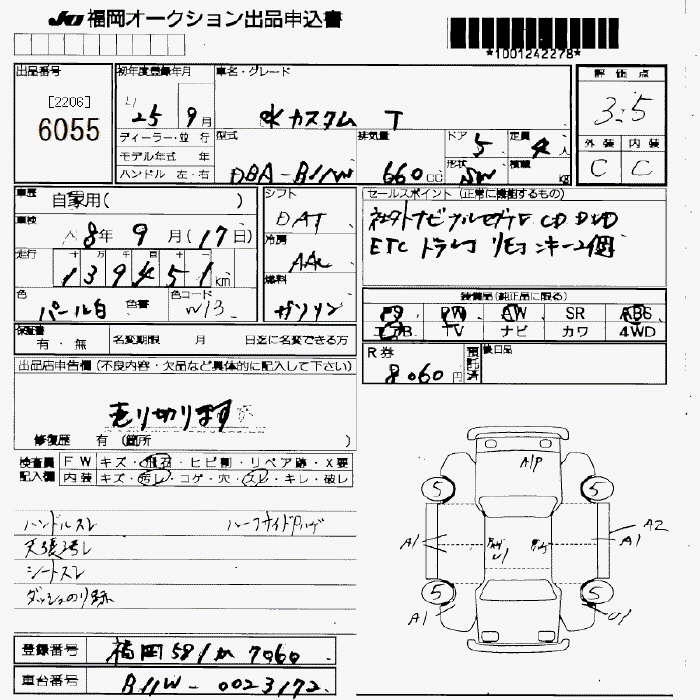 JU 福岡オークション出品申込書
*1001242278*
出品番号
[2206]
6055
初年度登録年月
25年 9月
車名・グレード
eK カスタム T
評価点
3.5
外装 内装
C C
ディーラー・並行
モデル年式 年
ハンドル 左・右
型式
DBA-B11W
排気量
660cc
ドア
5
形状
SW
定員
4人
積載
kg
車歴
自家用( )
車検
8年 9月(17日)
走行
139451km
色
パール白
色替
色コード
W13
シフト
DAT
冷房
AAC
燃料
ガソリン
セールスポイント(正常に機能するもの)
社外ナビ フルセグTV CD DVD
ETC ドラレコ リモコンキー2個
装備品(純正品に限る)
PS PW AW SR ABS
エアB TV ナビ カワ 4WD
保証書
有・無
名変期限 月 日迄に名変できる方
R券
8060円
預託済
後日品
出品店申告欄(不良内容・欠品など具体的に記入して下さい)
売り切ります
修復歴 有(箇所 )
検査員記入欄
FW キズ・飛石・ヒビ割・リペア跡・X要
内装 キズ・汚レ・コゲ・穴・スレ・キレ・破レ
ハンドルスレ
天張汚レ
シートスレ
ダッシュのり跡
A/P
5 5
A1
A2
A1
U1
5 5
A1
U1
登録番号
福岡 581 か 7060
車台番号
B11W-0023172